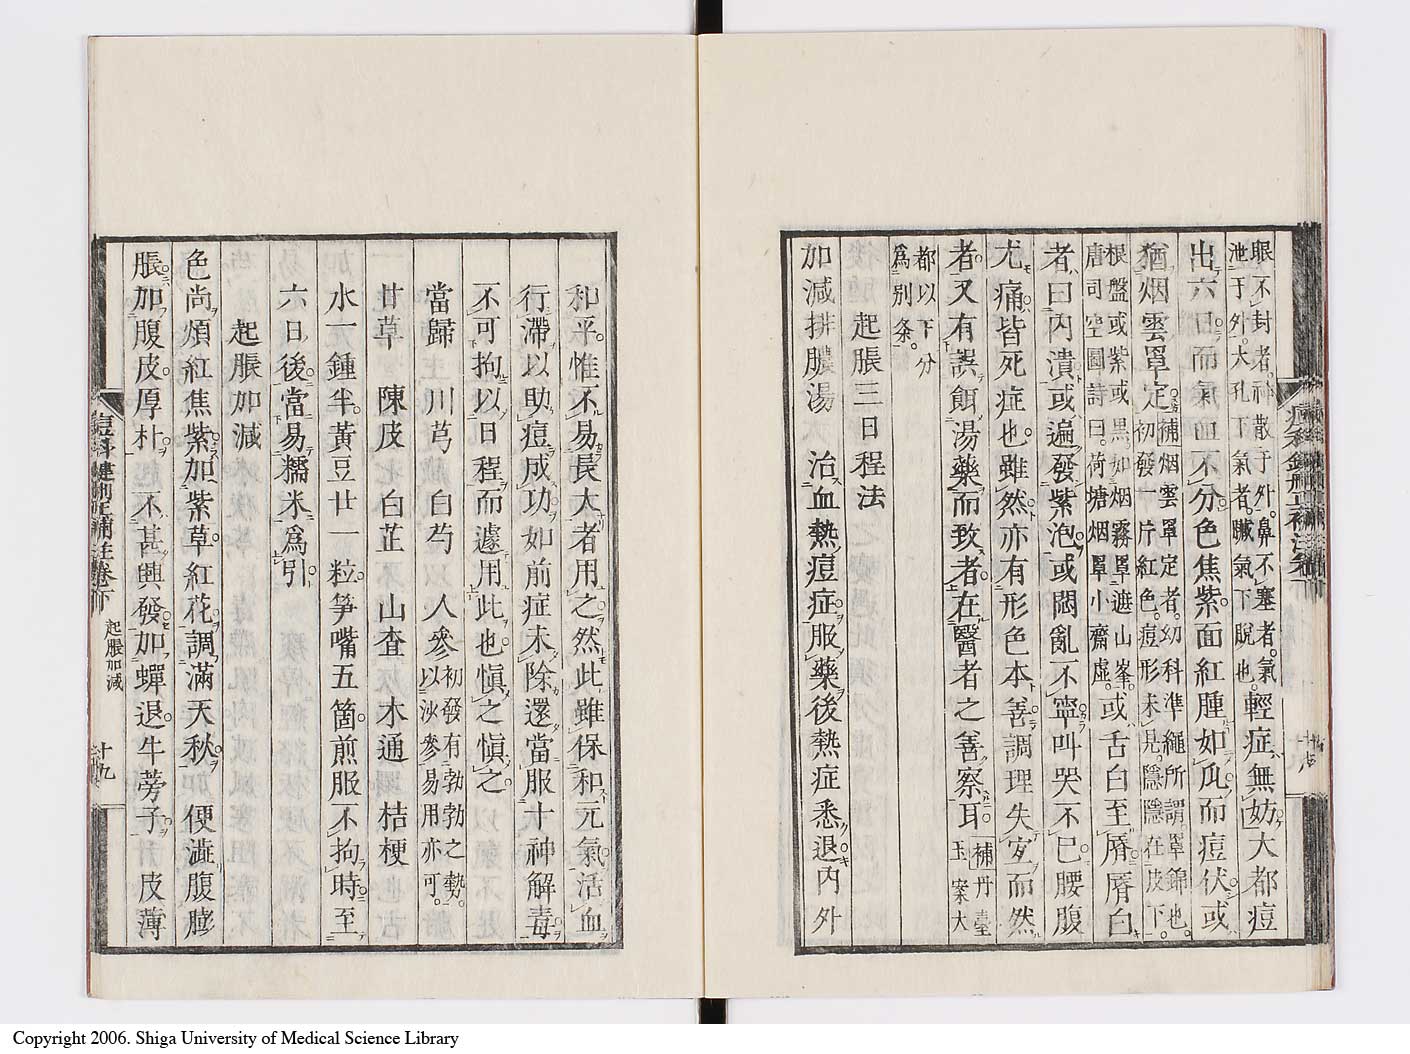 眼不封者神散于外鼻不塞者氣
泄于外。大孔下氣者臟氣下脫也。輕症無妨大都痘
出六日而氣血不分色焦紫面紅腫如瓜而痘伏或
猶烟雲罩定補烟雲罩定者。幼科準繩所謂罩錦也。
初發一片紅色。痘形未見。隱隱在皮下。
根盤或紫或黑如烟霧罩遮山峯。
唐司空圖詩曰。荷塘烟罩小齋虛。或舌白至脣脣白
者曰内潰或遍發紫泡或悶亂不寧叫哭不已腰腹
尤痛皆死症也雖然亦有形色本善調理失宜而然
者又有誤餌湯藥而致者在醫者之善察耳補丹臺
玉案大
都以下分
爲別条。
起脹三日程法
加減排膿湯 治血熱痘症服藥後熱症悉退内外
和平。惟不易長大者用之然此雖保和元氣活血
行滯以助痘成功如前症未除還當服十神解毒
不可拘以日程而遽用此也愼之愼之
當歸 川芎 白芍 人參初發有勃勃之勢。
以沙參易用亦可。
甘草 陳皮 白芷 山査 木通 桔梗
水一鍾半。黃豆廿一粒笋嘴五箇煎服不拘時至
六日後當易糯米爲引
起脹加減
色尚煩紅焦紫加紫草紅花調滿天秋 便澁腹膨
脹加腹皮厚朴 不甚興發加蟬退牛蒡子 皮薄
痘科鍵刪正補注卷下
起脹加減
十九
Copyright 2006. Shiga University of Medical Science Library